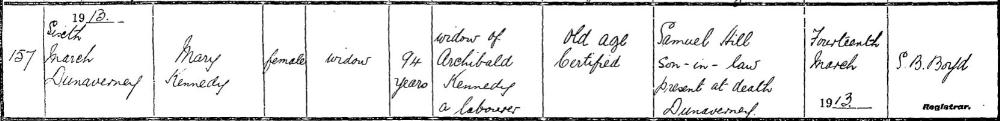 157
1913.
Sixth
March
Dunaverney
Mary
Kennedy
female
widow
94
years
widow of
Archibald
Kennedy
a labourer
Old age
Certified
Samuel Hill
son-in-law
present at death
Dunaverney.
Fourteenth
March
1913
S. B. Boyd
Registrar.